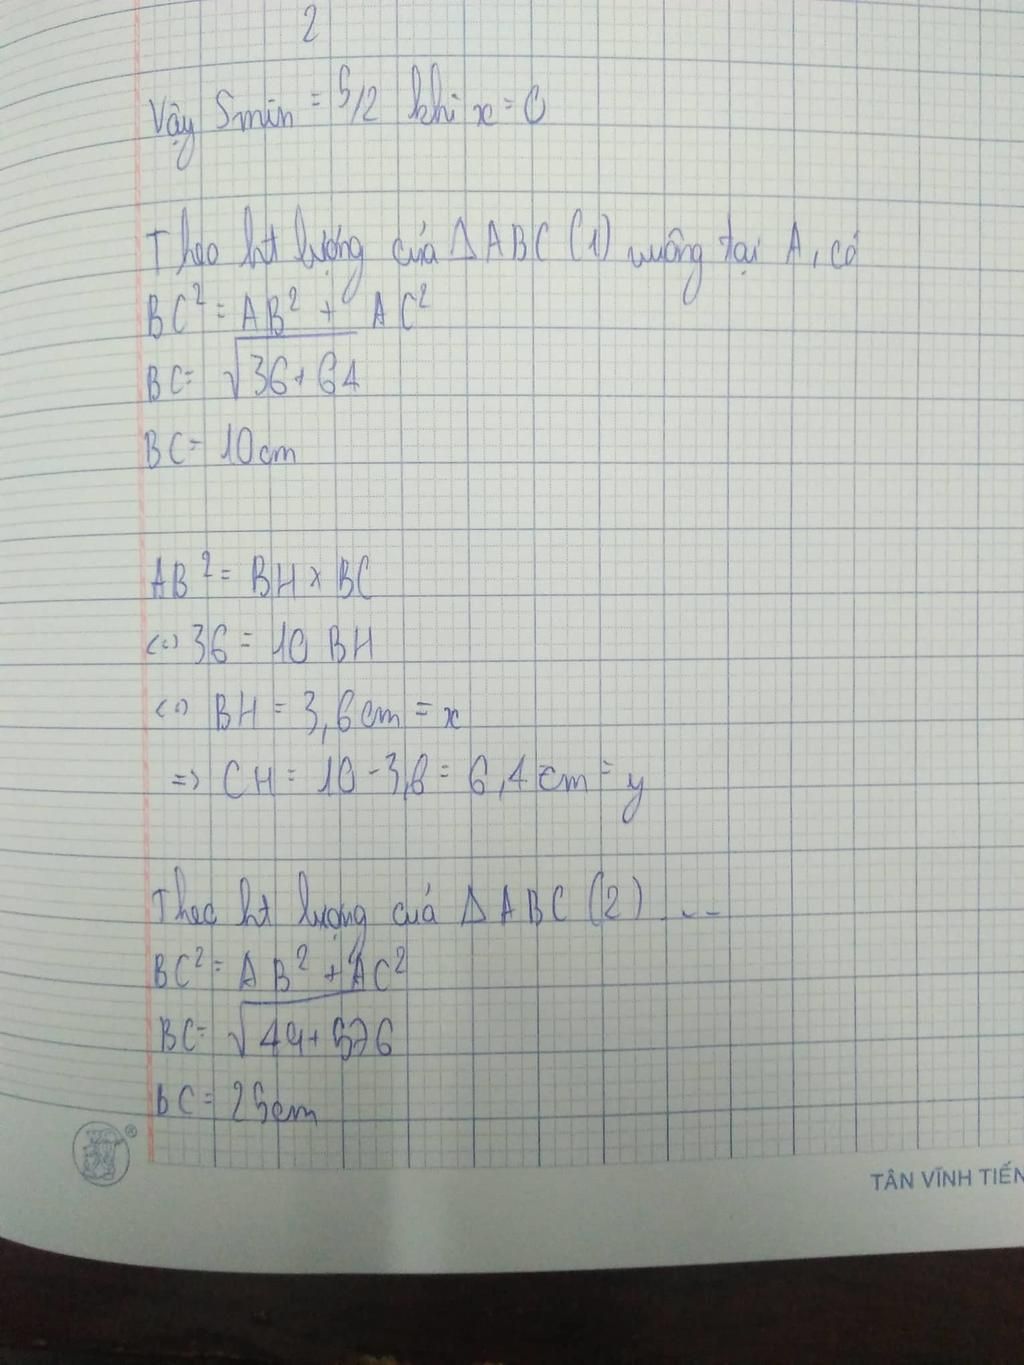 2
Vậy Smin = 5/2 khi x = 0
Theo ht lượng của ΔABC (1) vuông tại A, có
BC² = AB² + AC²
BC = √36+64
BC = 10cm
AB² = BH x BC
<=> 36 = 10 BH
<=> BH = 3,6cm = x
=> CH = 10 - 3,6 = 6,4cm = y
Theo ht lượng của ΔABC (2) ---
BC² = AB² + AC²
BC = √49+576
BC = 25cm
®
TÂN VĨNH TIẾN